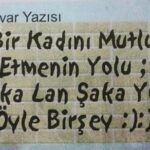 var Yazısı
Bir Kadını Mutlu
Etmenin Yolu ;
ka Lan Şaka Y
Öyle Birşey :):)